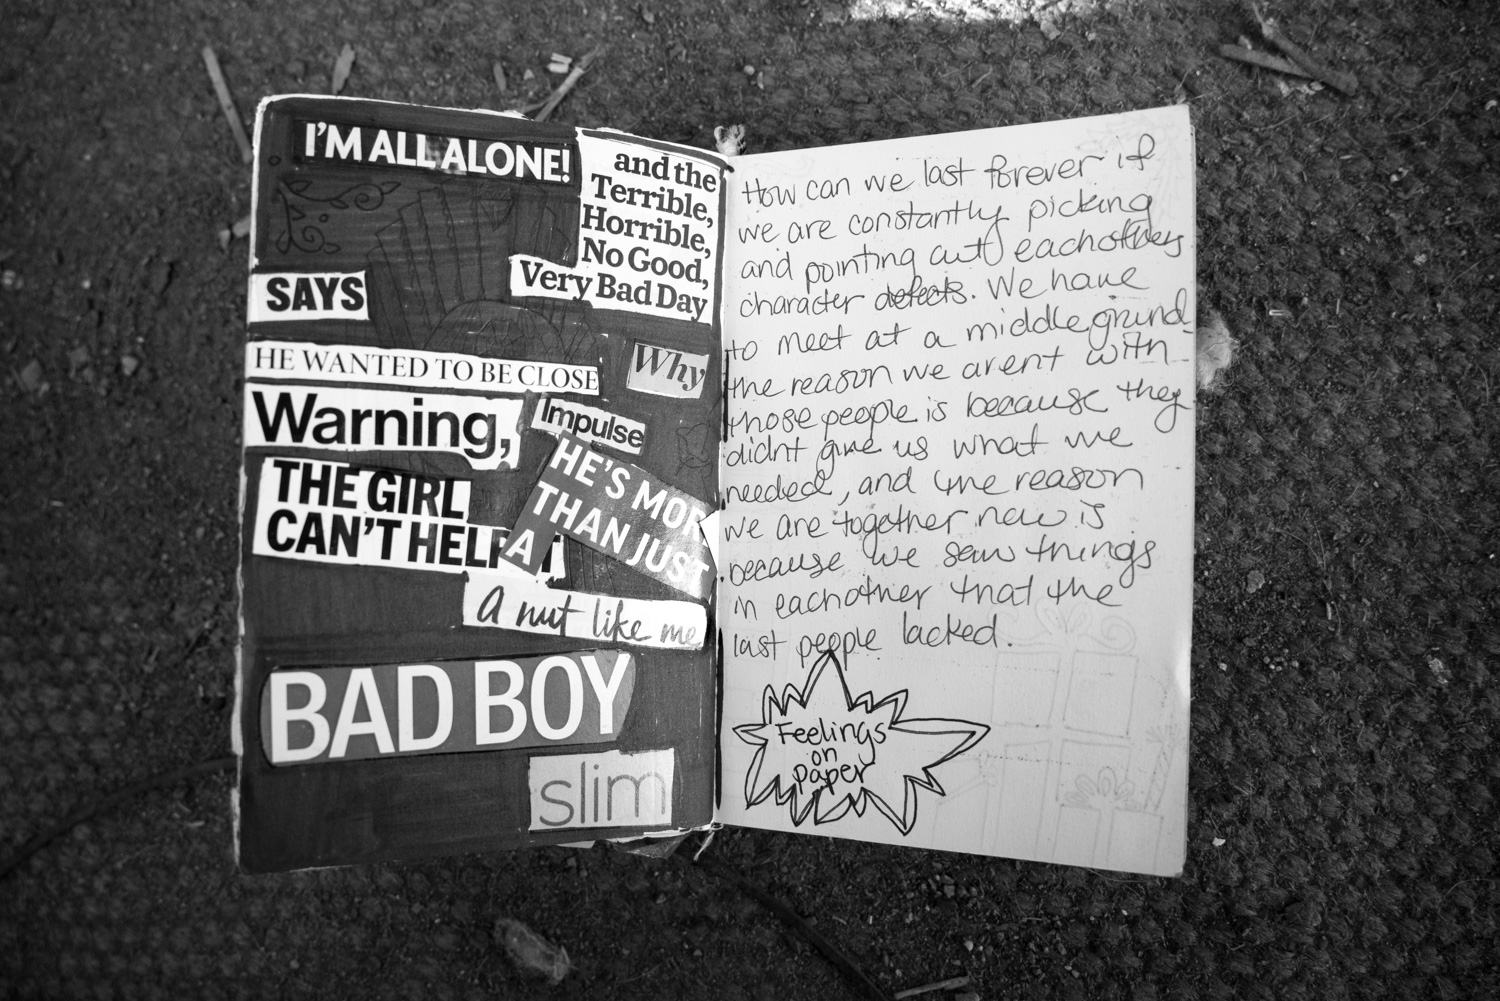 I'M ALL ALONE!
and the
Terrible,
Horrible,
No Good,
Very Bad Day
SAYS
HE WANTED TO BE CLOSE
Why
Warning,
Impulse
THE GIRL
CAN'T HELP IT
HE'S MOR
THAN JUST
A
A nut like me
BAD BOY
slim
How can we last forever if
we are constantly picking
and pointing out eachothers
character defects. We have
to meet at a middle grund
the reason we arent with
those people is because they
didnt give us what we
needed, and the reason
we are together now is
because we saw things
in eachother that the
last people lacked.
Feelings
on
paper